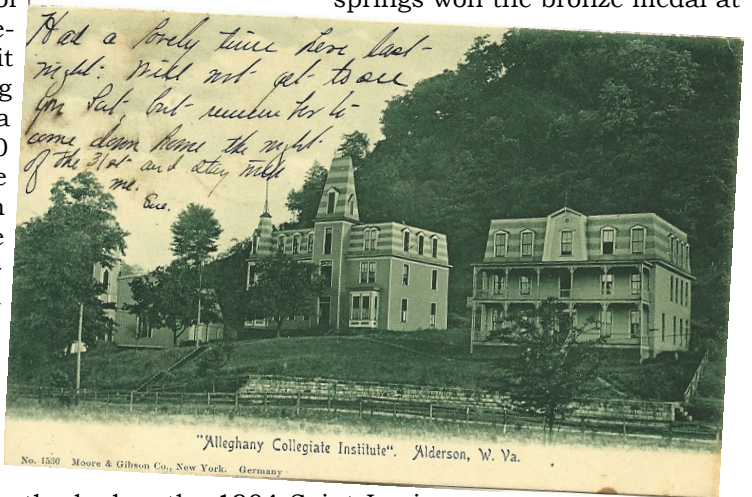 springs won the bronze medal at
Had a lovely time here last
night. Will not get to see
you Sat, but remember to
come down home the night
of the 31st and stay with
me.
Eve.
e-
it
g
a
0
e
n
e
"Alleghany Collegiate Institute". Alderson, W. Va.
No. 1530 Moore & Gibson Co., New York. Germany
the 1904 Saint Louis